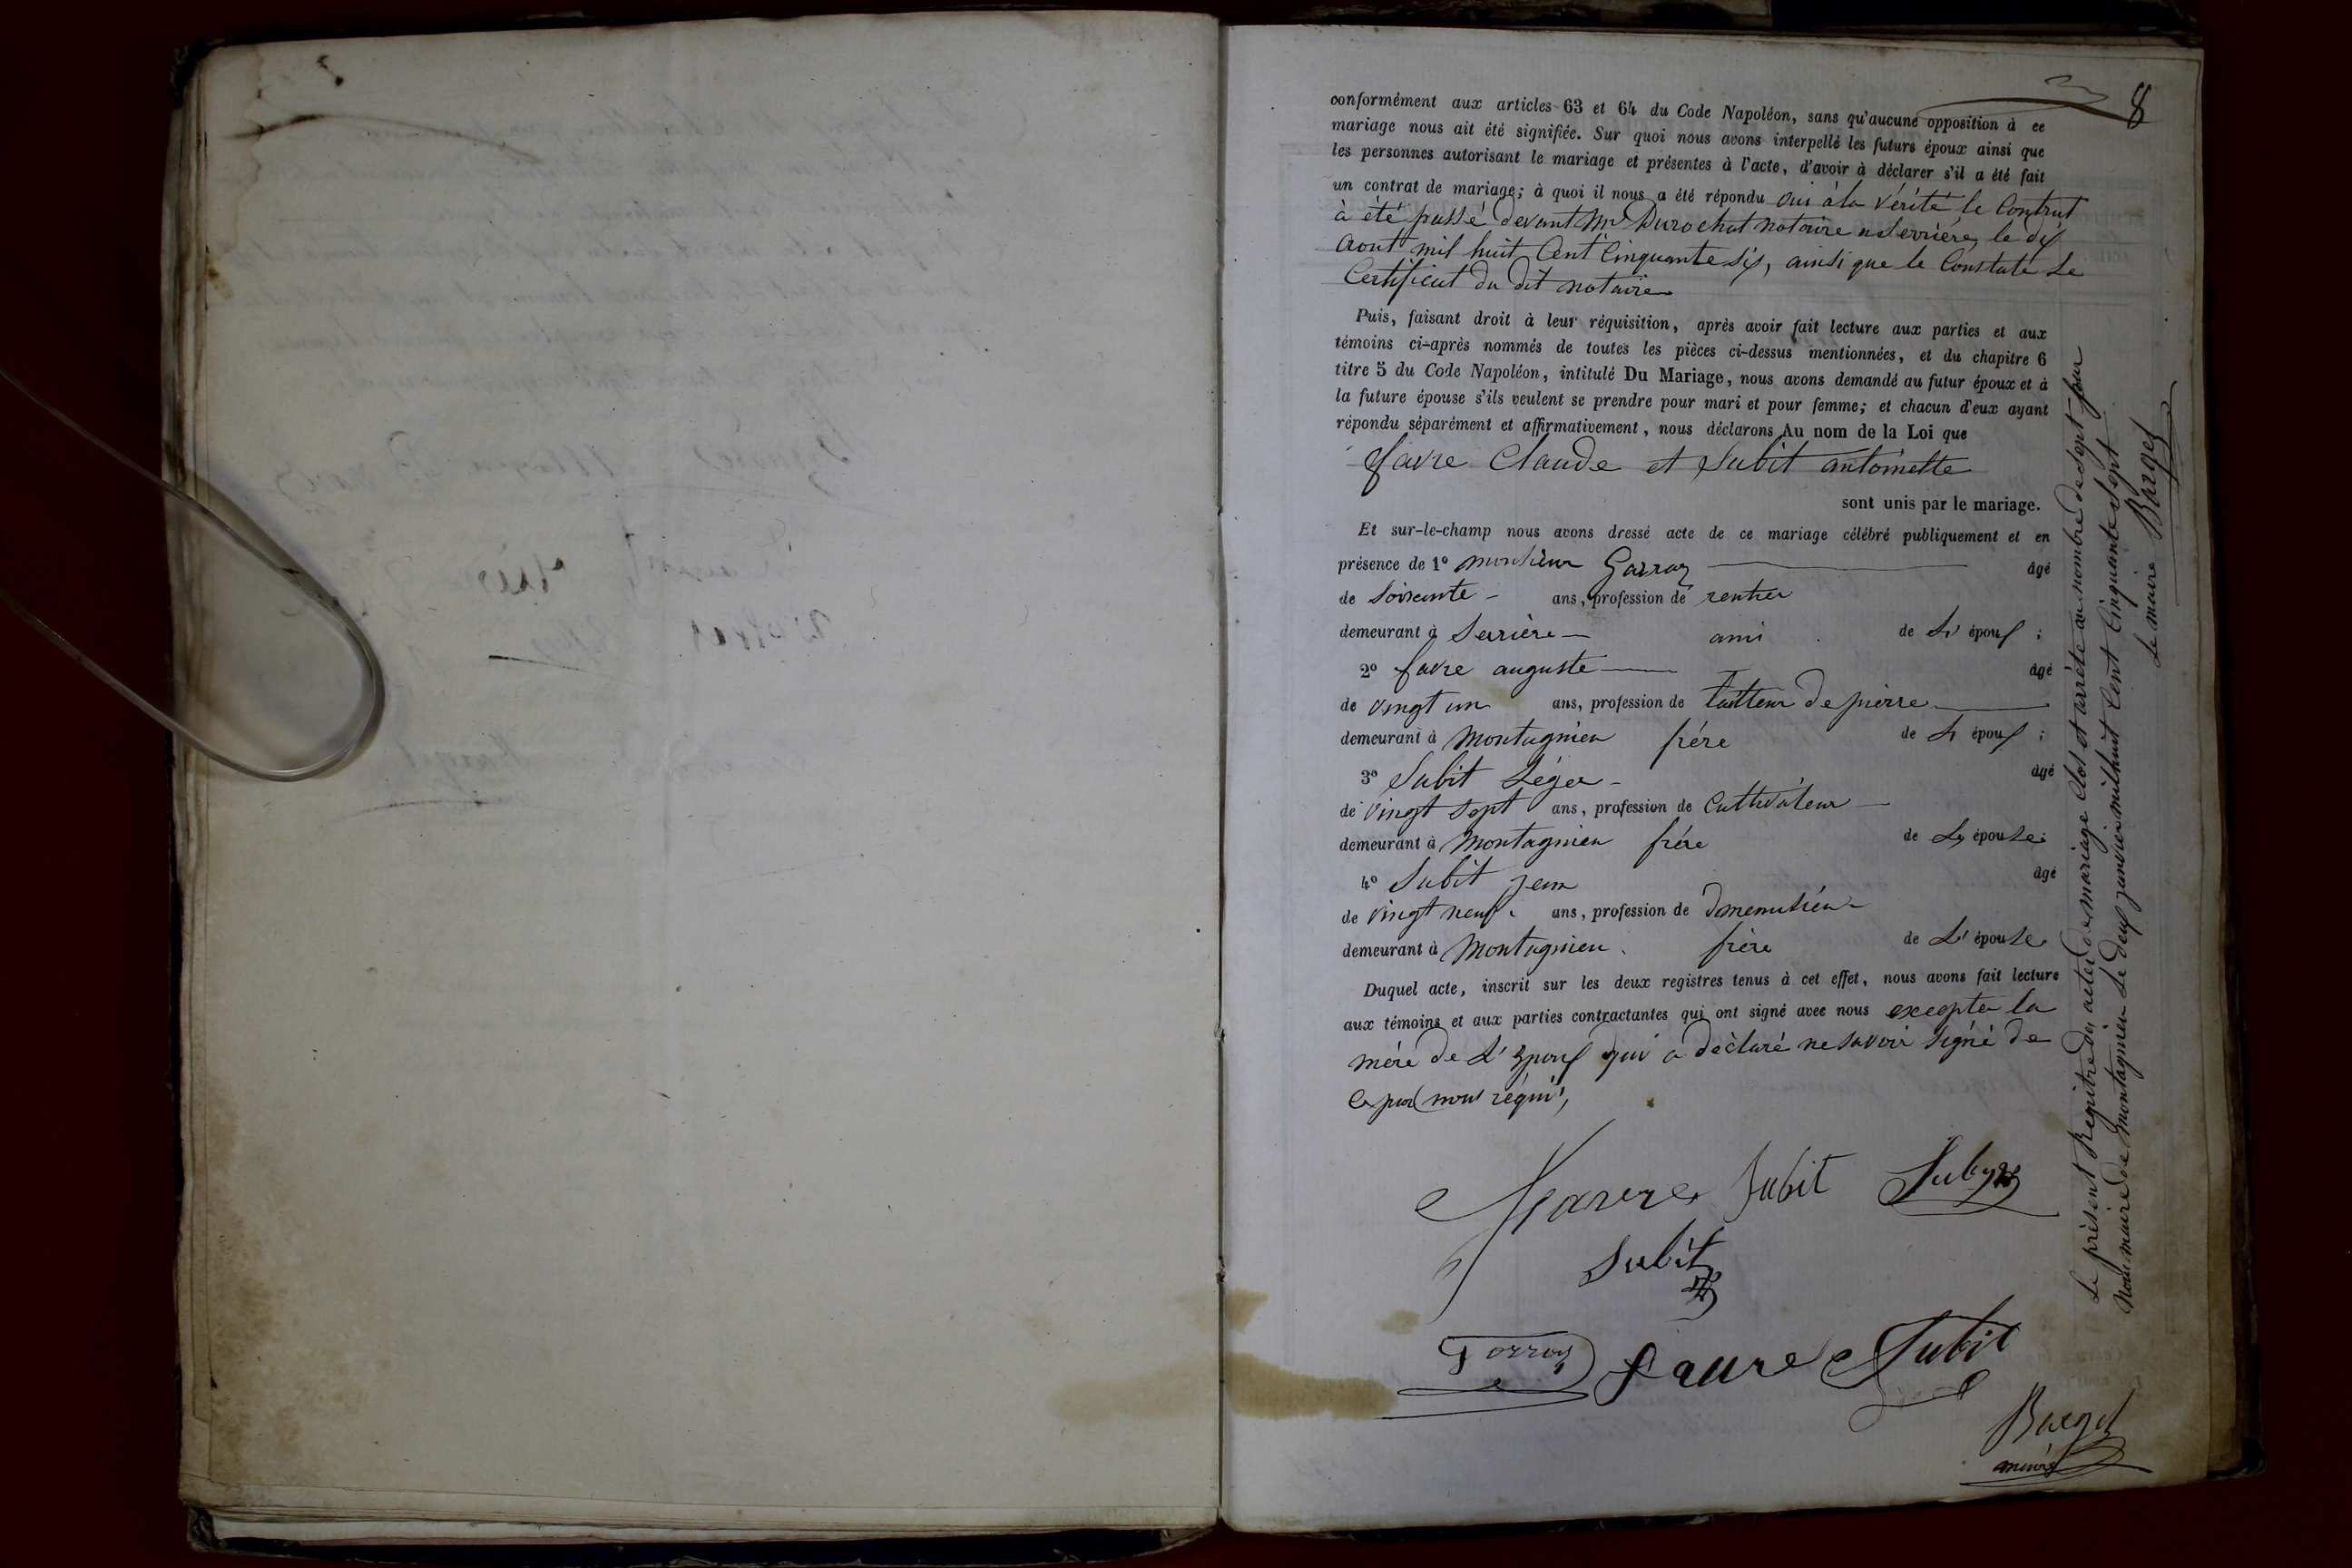 8
conformément aux articles 63 et 64 du Code Napoléon, sans qu'aucune opposition à ce
mariage nous ait été signifiée. Sur quoi nous avons interpellé les futurs époux ainsi que
les personnes autorisant le mariage et présentes à l'acte, d'avoir à déclarer s'il a été fait
un contrat de mariage; à quoi il nous a été répondu oui à la vérité le Contrat
à été passé devant Mr Durochat notaire a Serrière, le dix
Aout mil huit Cent Cinquante six, ainsi que le Constate Le
Certificat du dit notaire
Puis, faisant droit à leur réquisition, après avoir fait lecture aux parties et aux
témoins ci-après nommés de toutes les pièces ci-dessus mentionnées, et du chapitre 6
titre 5 du Code Napoléon, intitulé Du Mariage, nous avons demandé au futur époux et à
la future épouse s'ils veulent se prendre pour mari et pour femme; et chacun d'eux ayant
répondu séparément et affirmativement, nous déclarons Au nom de la Loi que
favre Claude et Subit antoinette
sont unis par le mariage.
Et sur-le-champ nous avons dressé acte de ce mariage célébré publiquement et en
présence de 1º monsieur âgé
de Soixante ans, profession de rentier
demeurant à Serrière ami de L' époux ;
2º favre auguste âgé
de vingt un ans, profession de tailleur de pierre
demeurant à Montagnieu frére de L' époux ;
3º Subit Léger âgé
de vingt sept ans, profession de Cultivateur
demeurant à Montagnieu frére de L' épouse ;
4º Subit jean âgé
de vingt neuf ans, profession de
demeurant à Montagnieu. frère de L' épouse
Duquel acte, inscrit sur les deux registres tenus à cet effet, nous avons fait lecture
aux témoins et aux parties contractantes qui ont signé avec nous excepter la
mére de L' Epoux qui a déclaré ne savoir signé de
ce par nous réquis,
Favre Subit
Subit
Faure Subit
Barget
maire
Le présent Registre des actes de mariage Clos et arrété au nombre de sept par
Nous maire de Montagnieu Le deux janvier mil huit Cent Cinquante Sept
Le maire Barget